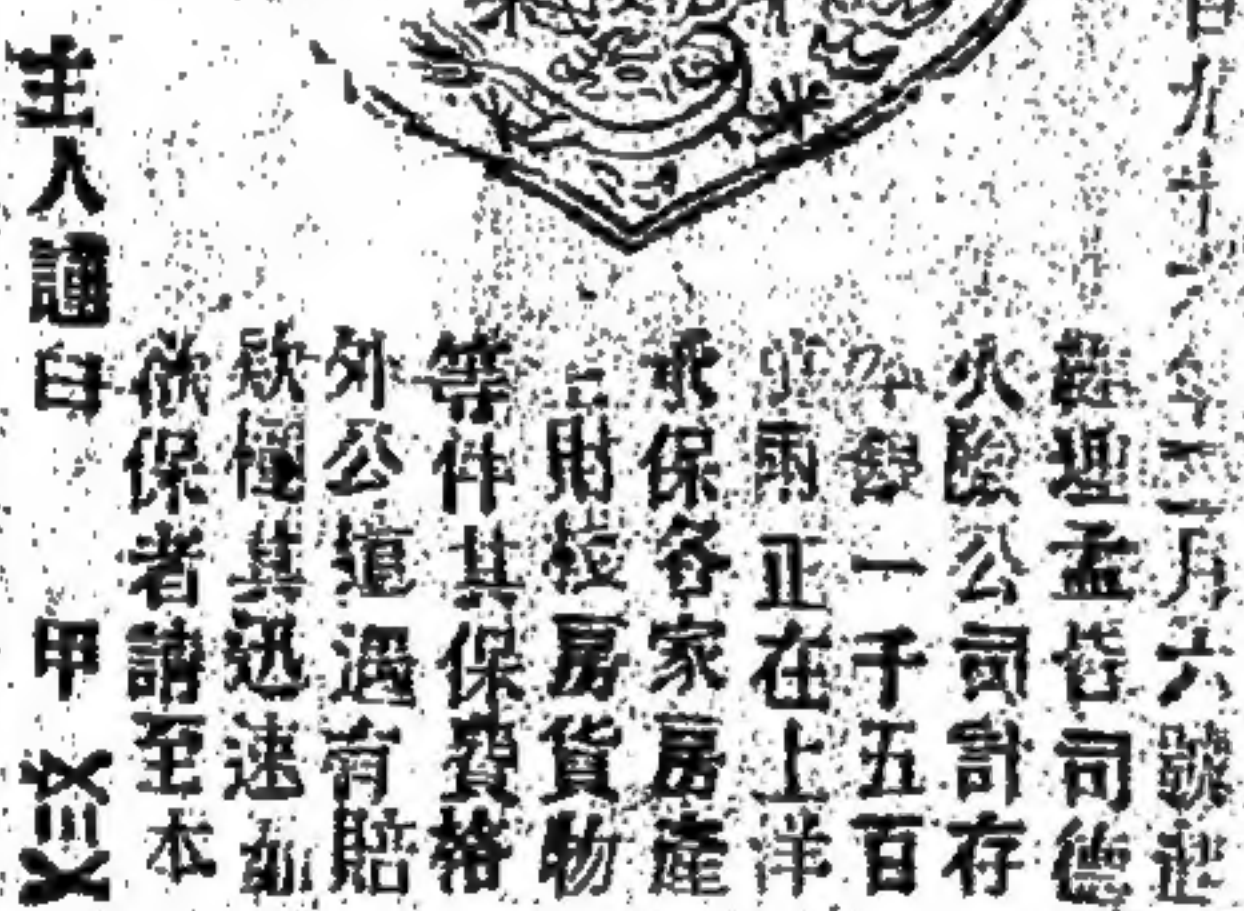 百九十六年二月六號起
孟皆司德
火險公司計存
銀一千五百
兩正在上洋
承保各家房產
財棧房貨物
等件其保費格
外公道遇有賠
款極其迅速如
欲保者請至本
主人謹白 甲